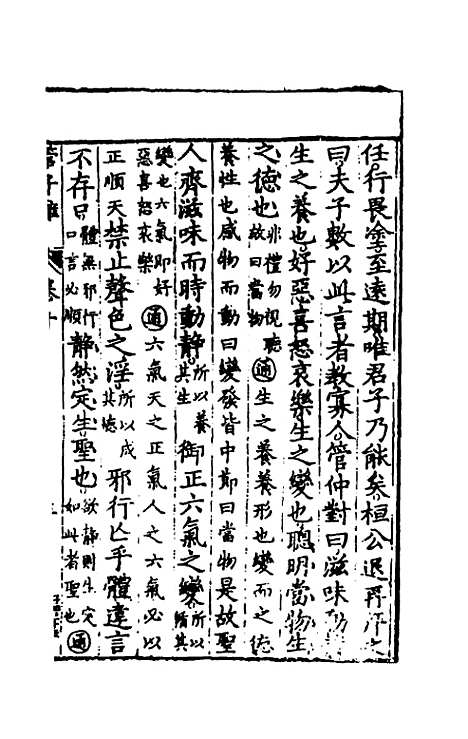 任行畏塗至遠期唯君子乃能矣桓公退再拜之
曰夫子數以此言者教寡人管仲對曰滋味動靜
生之養也好惡喜怒哀樂生之變也聰明當物生
之德也非禮勿視聽故曰當物通生之養養形也變而之德
養性也感物而動曰變發皆中節曰當物是故聖
人齊滋味而時動靜所以養其生御正六氣之變所以循其
變也六氣即好惡喜怒哀樂通六氣天之正氣人之六氣必以
正順天禁止聲色之淫所以成其德邪行亡乎體違言
不存口體無邪行口言必順靜然定生聖也欲靜則生定如此者聖也通
管子 卷十